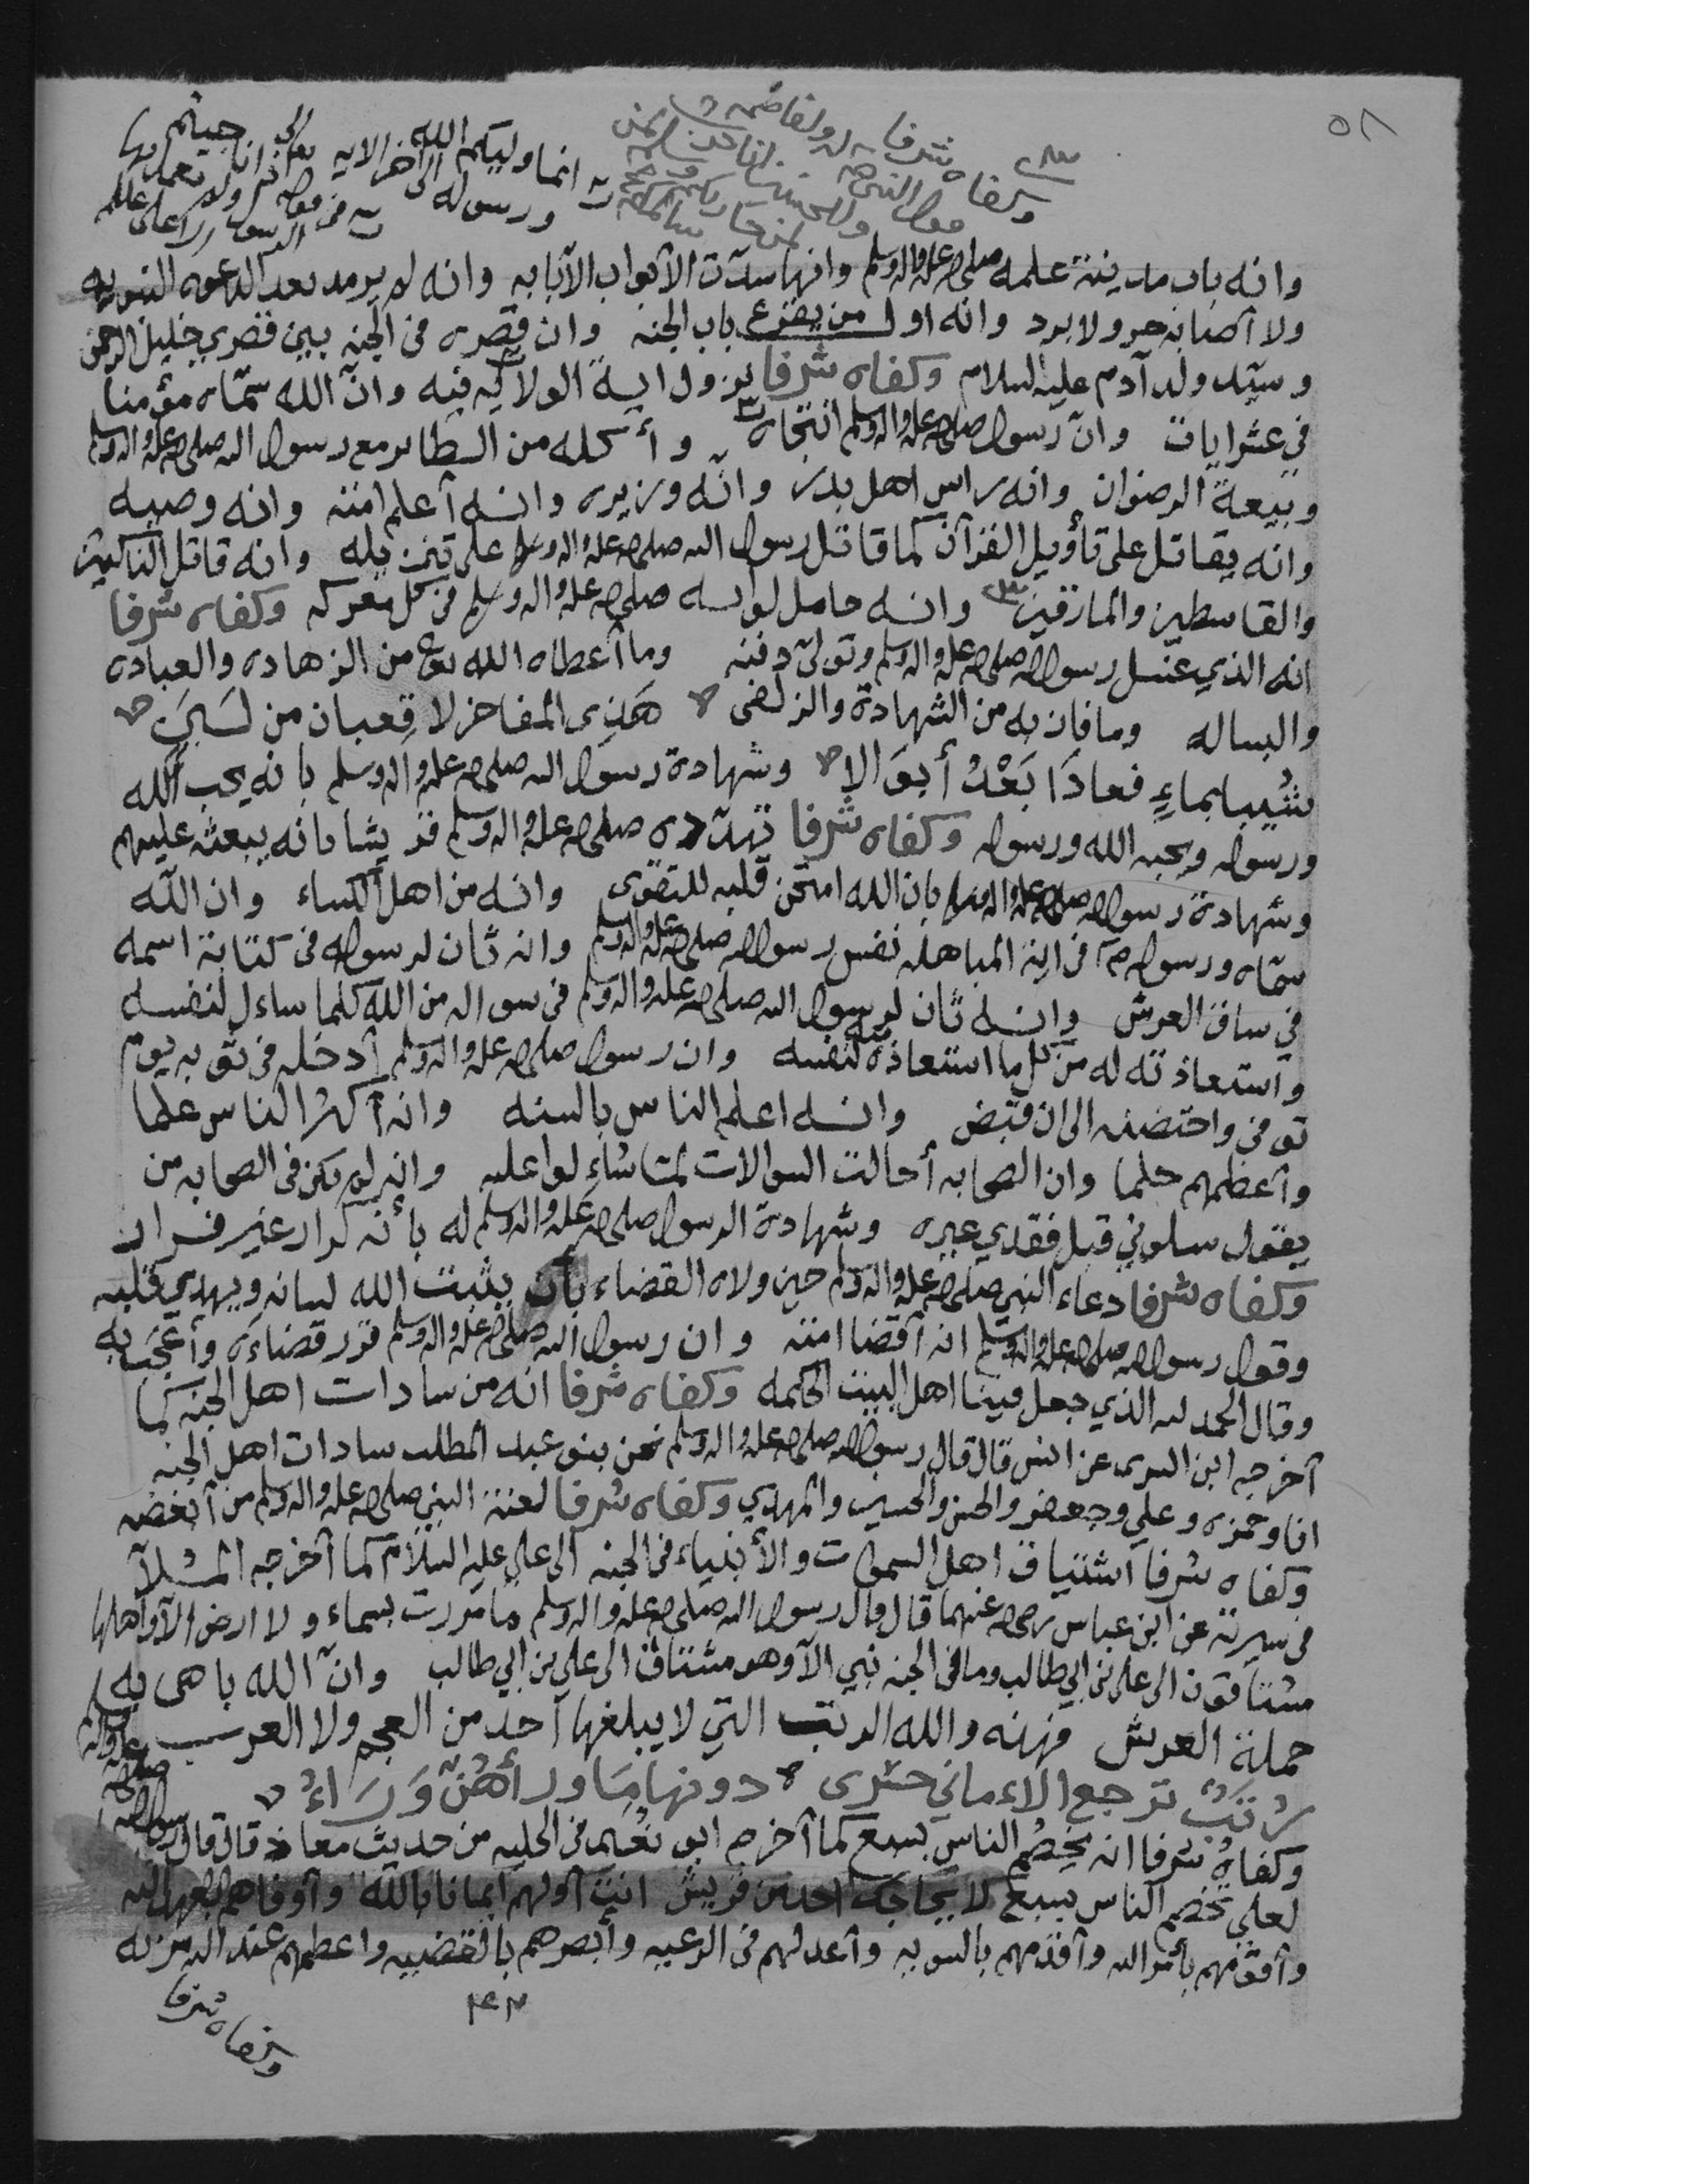 ٥٨
وكفاه شرفا
انما وليكم الله
ورسوله الى اخر الايه
وانه باب مدينة علمه صلى الله عليه واله وسلم وانها سدت الأبواب الا بابه وانه لم يرمد بعد الدعوه النبويه
ولا أصابه حر ولا برد وانه اول من يقرع باب الجنه وان قصره في الجنه بين قصري خليل الرحمن
وسيد ولد آدم عليه السلام وكفاه شرفا نزول اية الولايه فيه وانّ الله سمّاه مؤمنا
في عشر ايات وانّ رسول صلى الله عليه واله وسلم انتجاه وأكله من الطاير مع رسول الله صلى الله عليه واله وسلم
وبيعة الرضوان وانه راس اهل بدر وانّه وزيره وانه أعلم امته وانه وصيه
وانه يقاتل على تأويل القرآن كما قاتل رسول الله صلى الله عليه واله وسلم على تنزيله وانه قاتل الناكثين
والقاسطين والمارقين وانه حامل لوائه صلى الله عليه واله وسلم في كل معركه وكفاه شرفا
انه الذي غسل رسول الله صلى الله عليه واله وسلم وتولى دفنه وما أعطاه الله من الزهاده والعباده
والبساله وما فاز به من الشهادة والزلفى هَذي المفاخر لا قعبان من لَبَنٍ
شيبا بماءٍ فعادا بَعْدُ أبوالا وشهادة رسول الله صلى الله عليه واله وسلم بانه يحب الله
ورسوله ويحبه الله ورسوله وكفاه شرفا تهدّده صلى الله عليه واله وسلم قريشا بانه يبعثه عليهم
وشهادة رسول الله صلى الله عليه واله وسلم بان الله امتحن قلبه للتقوى وانه من اهل الكساء وان الله
سمّاه ورسوله في اية المباهله نفس رسول الله صلى الله عليه واله وسلم وانه ثان لرسوله في كتابة اسمه
في ساق العرش وانه ثان لرسول الله صلى الله عليه واله وسلم في سواله من الله كلما ساءل لنفسه
واستعاذته له من كل ما استعاذ منه لنفسه وان رسول صلى الله عليه واله وسلم أدخله في ثوبه يوم
توفى واحتضنه الى ان قبض وانه اعلم الناس بالسنه وانه أكثر الناس علما
وأعظمهم حلما وان الصحابه أحالت السوالات لمّا سُاءِلوا عليه وانه لم يكن في الصحابه من
يقول سلوني قبل فقدي غيره وشهادة الرسول صلى الله عليه واله وسلم له بأنه كرار غير فرار
وكفاه شرفا دعاء النبي صلى الله عليه واله وسلم حين ولاه القضاء بأن يثبت الله لسانه ويهدي قلبه
وقول رسول الله صلى الله عليه واله وسلم انه أقضا امته وان رسول الله صلى الله عليه واله وسلم قرر قضاءه وأعجب به
وقال الحمد لله الذي جعل فينا اهل البيت الحكمه وكفاه شرفا انه من سادات اهل الجنه كما
أخرجه ابن السرى عن انس قال قال رسول الله صلى الله عليه واله وسلم نحن بنو عبد المطلب سادات اهل الجنه
انا وحمزه وعلي وجعفر والحسن والحسين والمهدي وكفاه شرفا لعنة النبي صلى الله عليه واله وسلم من أبغضه
وكفاه شرفا اشتياق اهل السموات والأنبياء في الجنه الى علي عليه السلام كما أخرجه الملا
في سيرته عن ابن عباس رضي الله عنهما قال قال رسول الله صلى الله عليه واله وسلم ما مررت بسماء ولا ارض الا وأهلها
مشتاقون الى علي بن ابي طالب وما في الجنه نبي الا وهو مشتاق الى علي بن ابي طالب وانّ الله باهى به
حملة العرش فهذه والله الرتب التي لا يبلغها أحد من العجم ولا العرب
رُتَبٌ ترجع الاماني حسرى دونها ما وراءهنّ وَرَاءُ
وكفاه شرفا انه يخصم الناس بسبع كما أخرجه ابو نعيم في الحليه من حديث معاذ قال قال رسول الله صلى الله عليه واله وسلم
لعلي تخصم الناس بسبع لا يحاجك احد من قريش انت أولهم ايمانا بالله وأوفاهم بعهد الله
وأقومهم بأمر الله وأقسمهم بالسويه وأعدلهم في الرعيه وأبصرهم بالقضيه واعظمهم عند الله مزيه
وكفاه شرفا